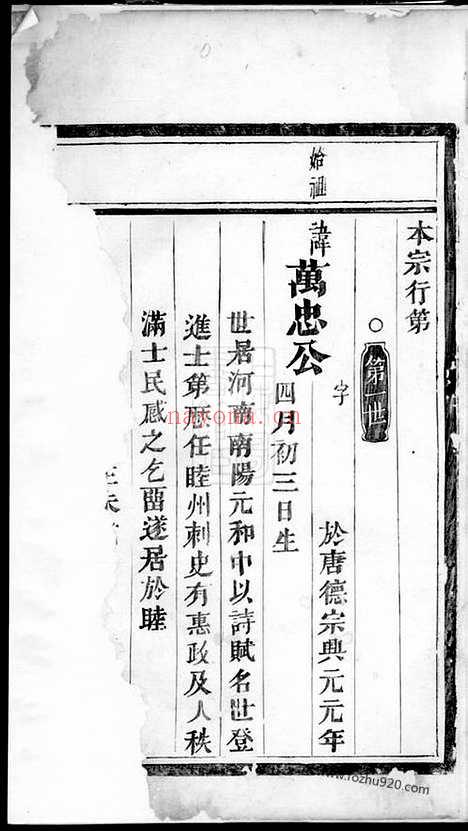 本宗行第
第一世
始祖
諱萬忠公
字
於唐德宗興元元年
四月初三日生
世居河南南陽元和中以詩賦名世登
進士第歷任睦州刺史有惠政及人秩
滿士民感之乞畱遂居於睦
nayona.cn
www.rozhu920.com